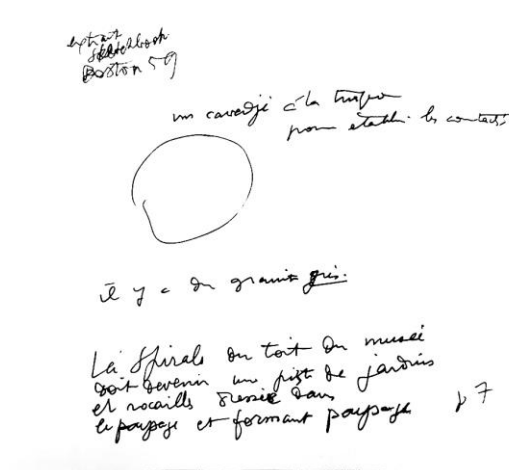 extrait
sketchbook
Boston 59
un cavedji à la turque
pour établir les contacts
il y a du granit gris.
La spirale du toit du musée
doit devenir un piste de jardins
et rocailles dressée dans
le paysage et formant paysage
p 7